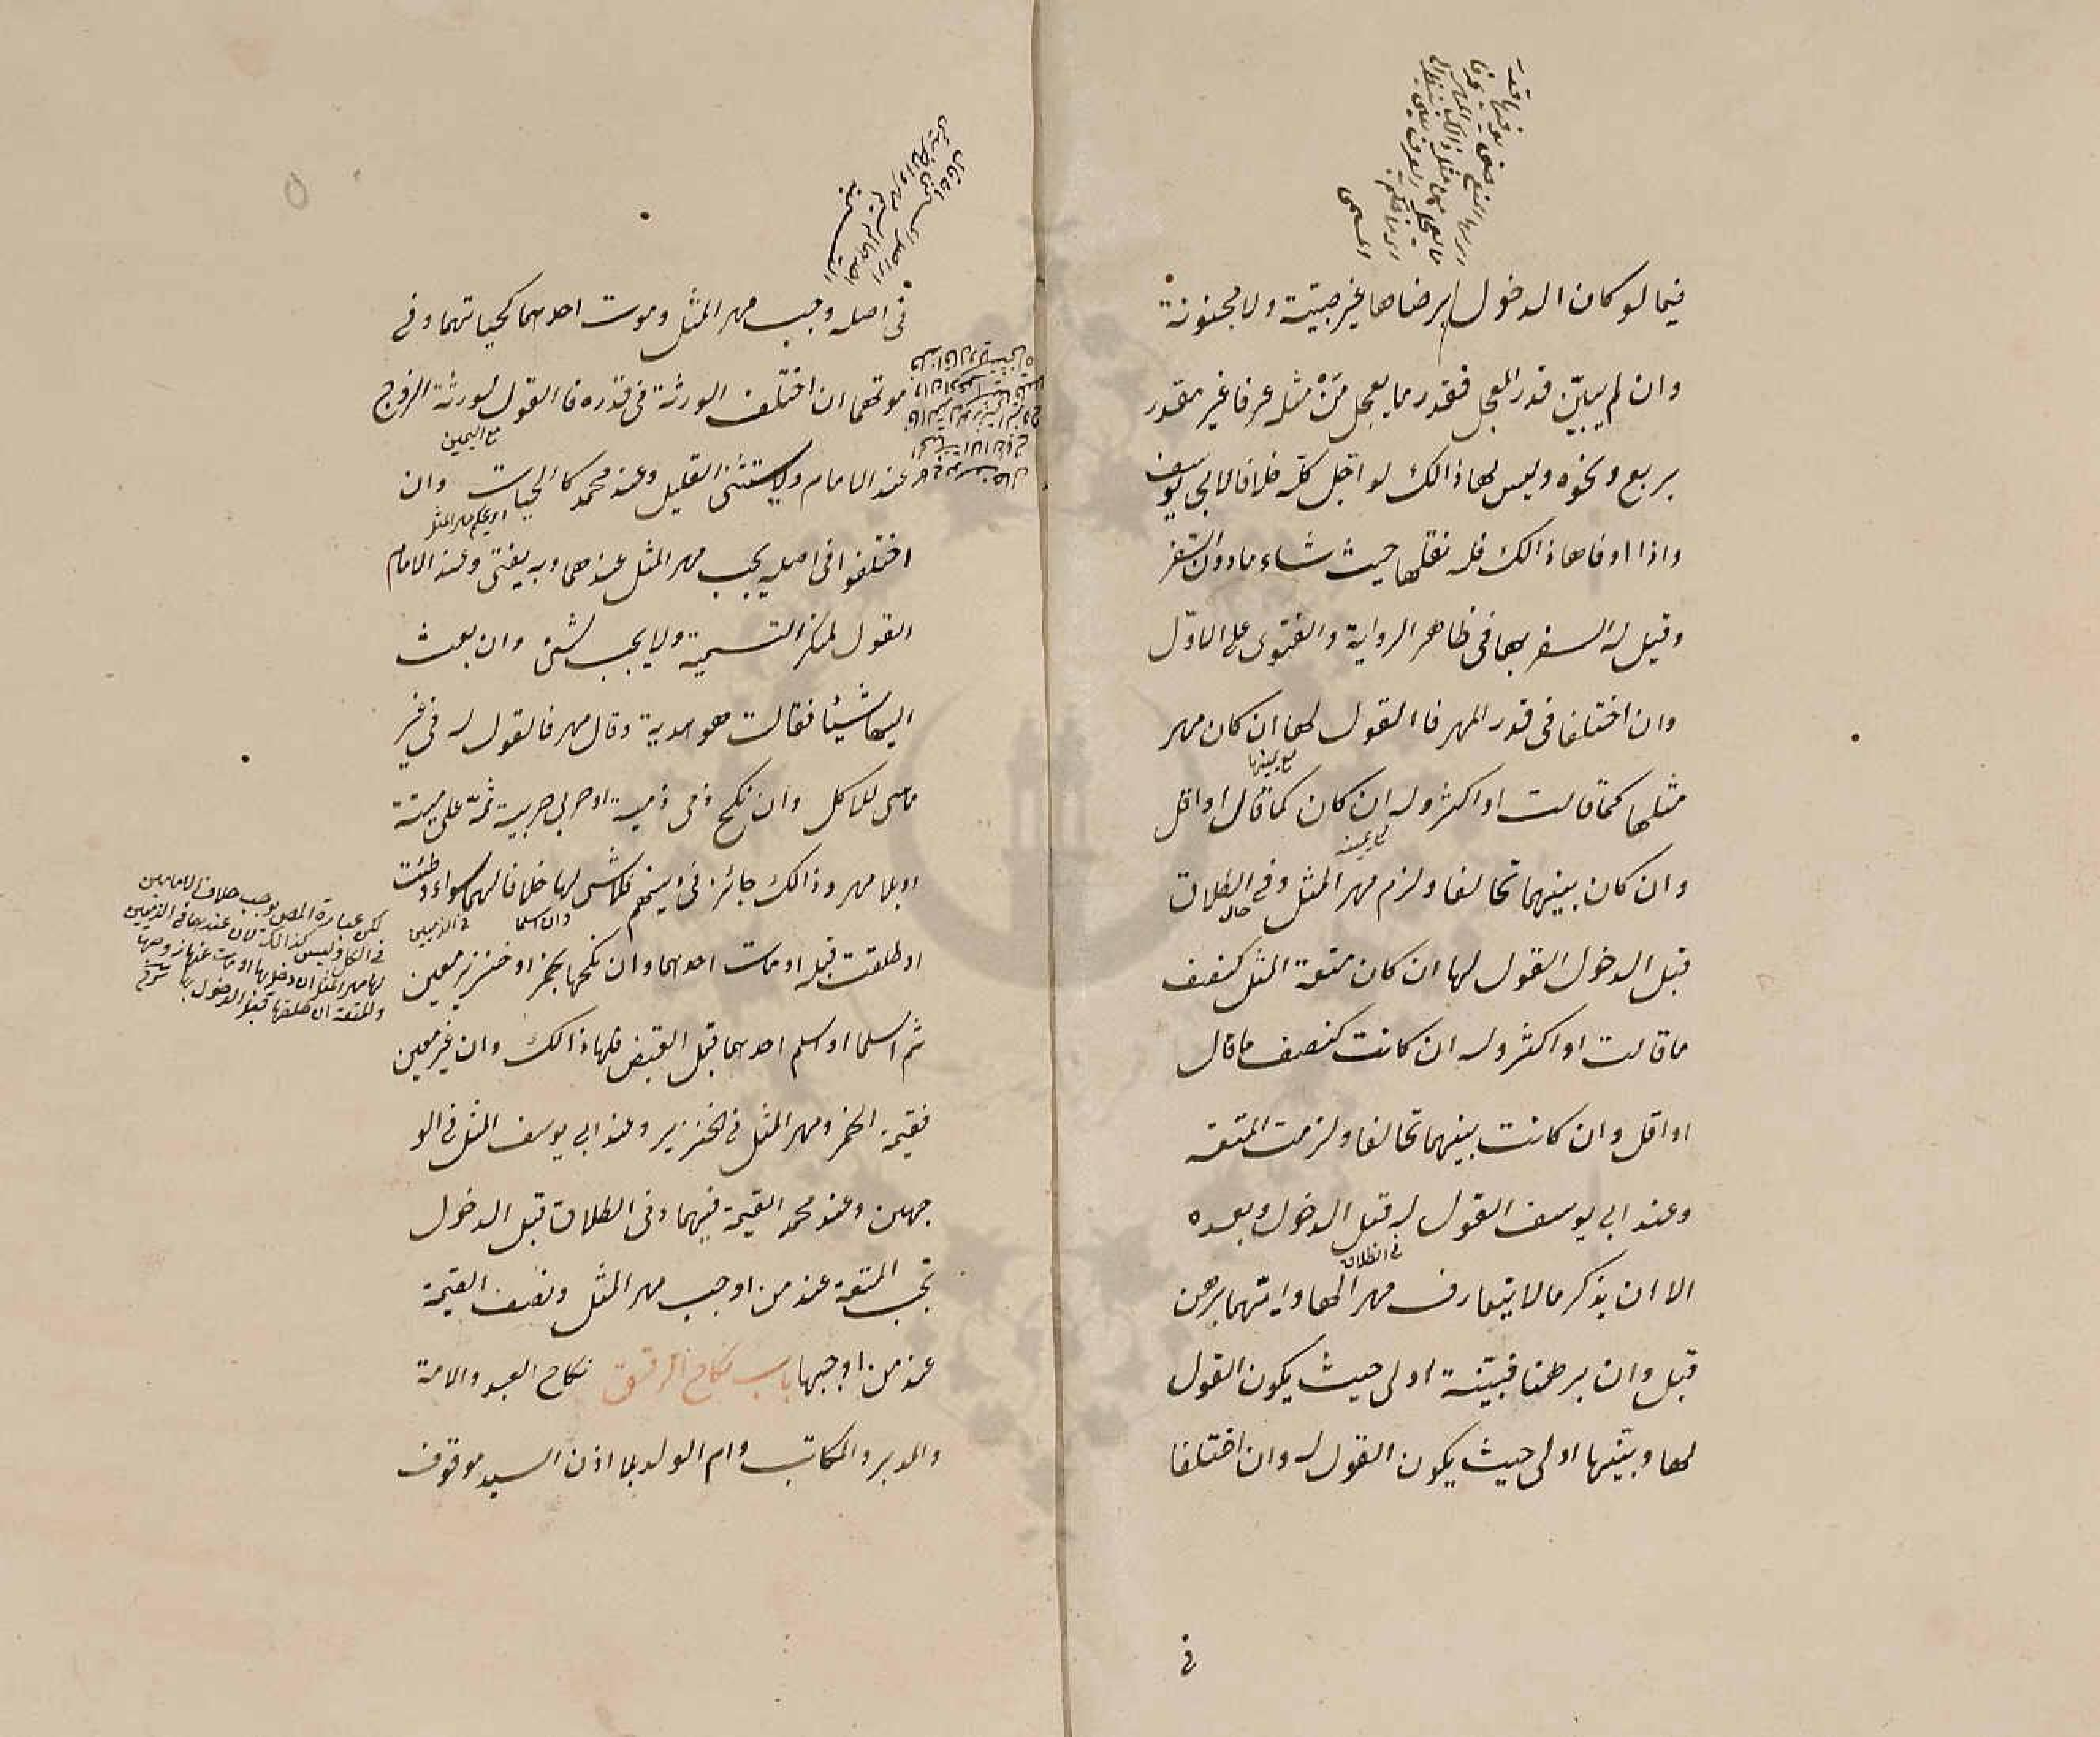 فيما لو كان الدخول برضاها غير صبيّة ولا مجنونة
وان لم يبيّن قدر المعجل فقدر ما يعجل مَنْ مثله عرفا غير مقدر
بربع ونحوه وليس لها ذالك لو اجّل كلّه خلافا لابي يوسف
واذا اوفاها ذالك فله نقلها حيث شاء ما دون السّفر
وقيل له السفر بها في ظاهر الرواية والفتوى على الاوّل
وان اختلفا في قدر المهر فا القول لها ان كان مهر
مع يمينها
مثلها كما قالت او اكثر وله ان كان كما قال او اقل
مع يمينه
وان كان بينهما تحالفا ولزم مهر المثل وفي الطلاق
حال
قبل الدخول القول لها ان كان متعة المثل كنصف
ما قالت او اكثر وله ان كانت كنصف ما قال
او اقل وان كانت بينهما تحالفا ولزمت المتعة
وعند ابي يوسف القول له قبل الدخول وبعده
في الطلاق
الا ان يذكر ما لا يتعارف مهر الها وايّهما برهن
قبل وان برهنا فبيّنة اولى حيث يكون القول
لها وبيّنها اولى حيث يكون القول له وان اختلفا
في
في اصله وجب مهر المثل وموت احدهما كحياتهما وفي
موتهما ان اختلف الورثة في قدره فا القول لورثة الزوج
مع اليمين
عند الامام ولا يستثنى القليل وعند محمد كا لحيات وان
اي يحكم مهر المثل
اختلفوا في اصله يجب مهر المثل عندهما وبه يفتى وعند الامام
القول لمنكر التسمية ولا يجب شئ وان بعث
اليها شيئا فقالت هو هدية وقال مهر فالقول له في غير
ما هئ للاكل وان نكح ذمى ذمية او حربى حربية ثمّة على ميتة
او بلا مهر وذالك جائز في دينهم فلا شئ لها خلافا لهما سواء وطئت
وان اسلما
في الذميين
او طلقت قبله او مات احدهما وان نكحها بخمر او خنزير معين
ثم اسلما او اسلم احدهما قبل القبض فلها ذالك وان غير معين
فقيمة الخمر ومهر المثل في الخنزير وعند ابي يوسف المثل في الو
جهين وعند محمد القيمة فيهما وفي الطلاق قبل الدخول
تجب المتعة عند من اوجب مهر المثل ونصف القيمة
عند من اوجبها باب نكاح الرقيق نكاح العبد والامة
والمدبر والمكاتب وام الولد بلا اذن السيد موقوف
لكن عبارة المص يوجب خلاف الامامين
في الكل وليس كذالك لان عندهما في الذميين
لها مهر المثل ان دخل بها او مات عنها زوجها
والمتعة ان طلقها قبل الدخول بها